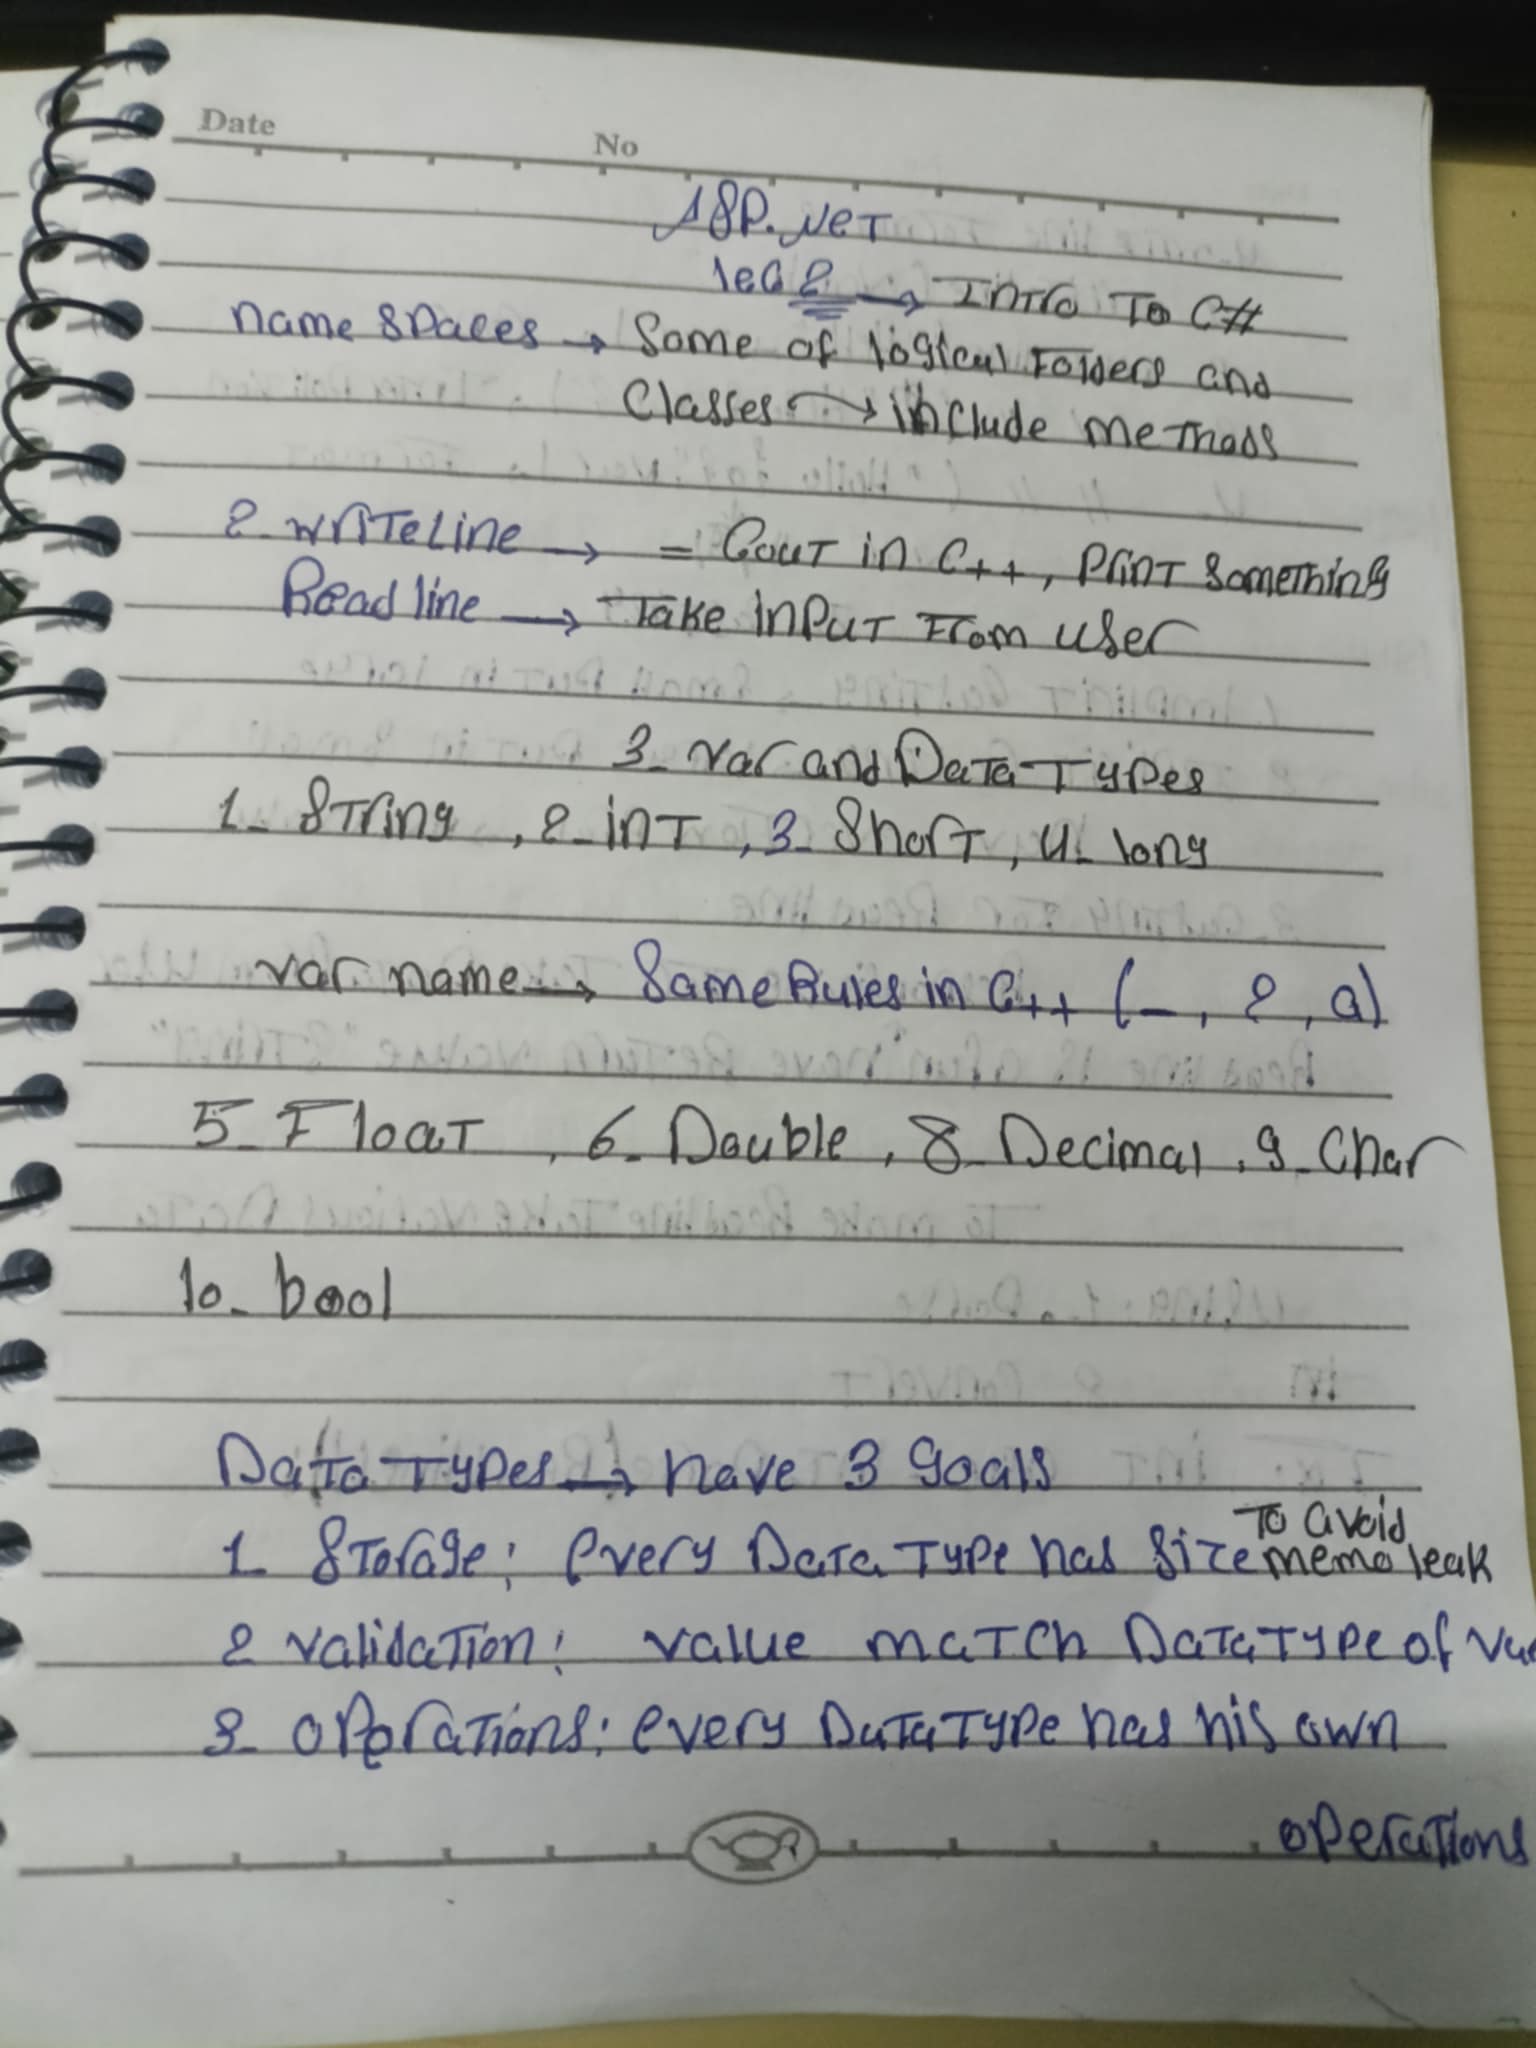 Date No
ASP.NET
lec 2 → Intro To C#
name spaces → Some of logical Folders and
Classes → include methods
2- writeline → = Cout in C++, Print Something
Read line → Take input From user
3- var and Data Types
1- String , 2- int , 3- Short , 4- long
var name → Same Rules in C++ (_ , 2 , a)
5- Float , 6- Double , 8- Decimal , 9- Char
10- bool
Data Types → have 3 goals
To avoid
1- Storage: every Data Type has size memo leak
2 validation: value match Data Type of
3- operations: every Data Type has his own
operations